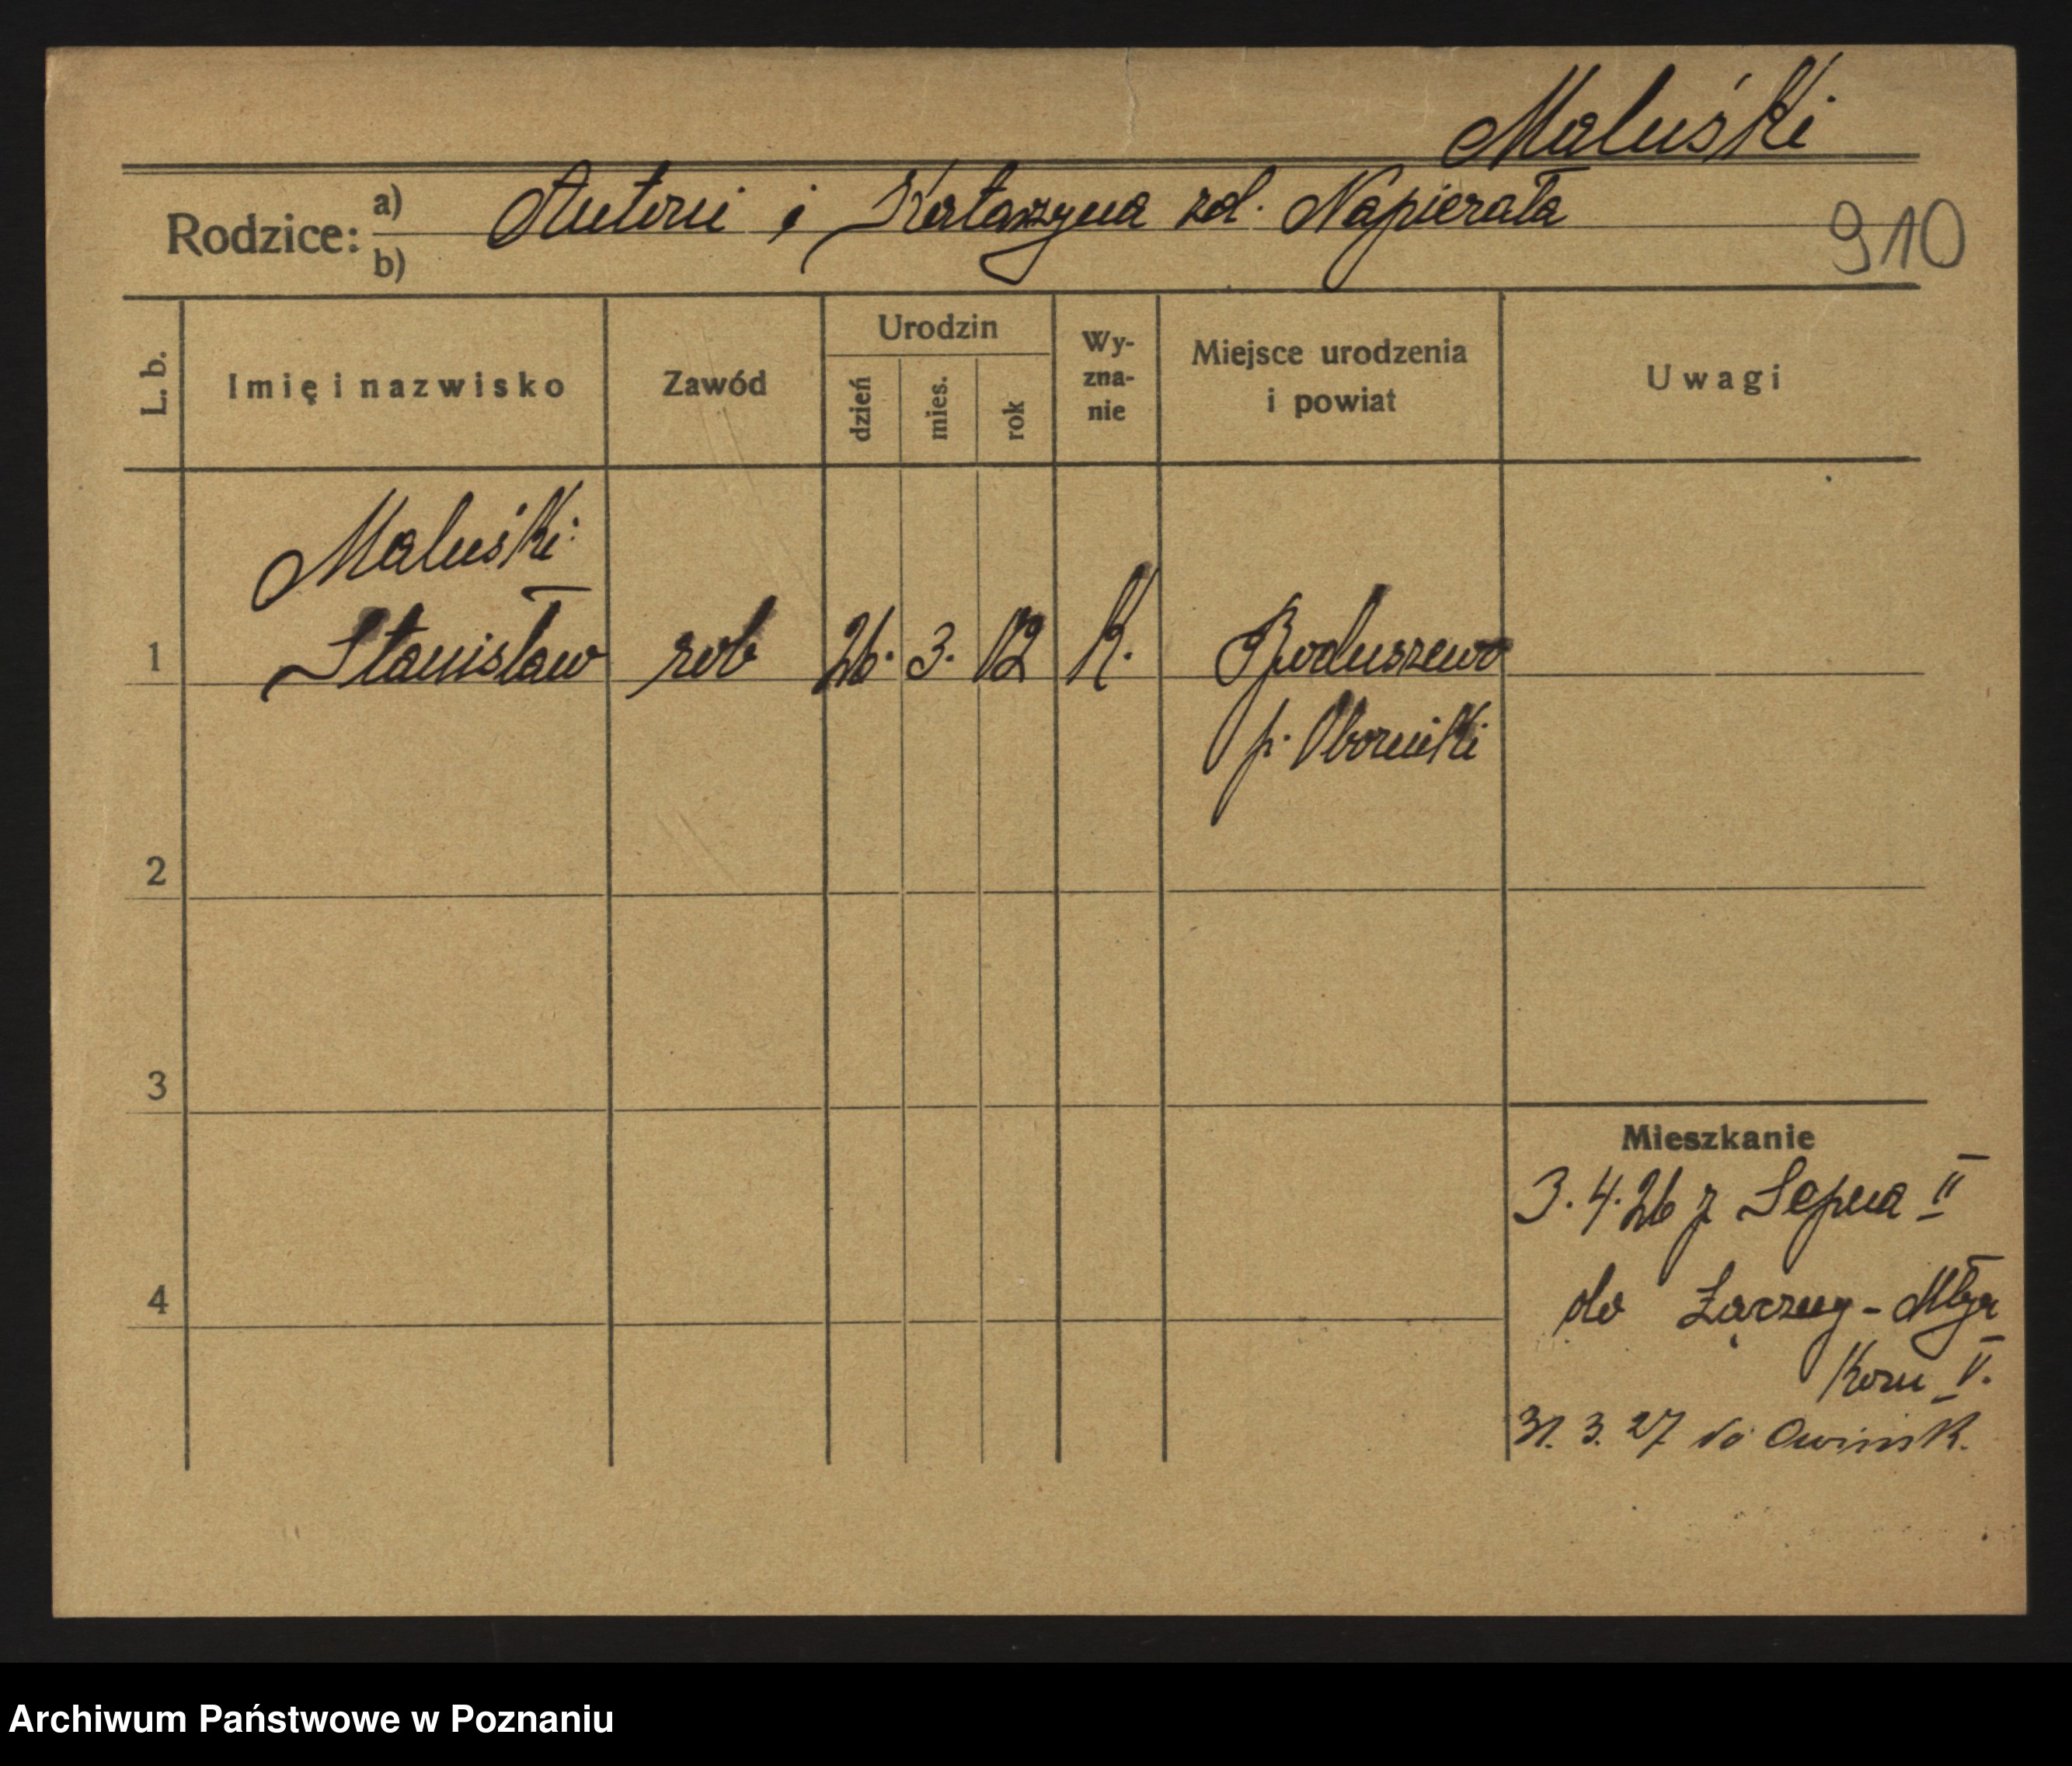 Maluśki
Rodzice: a) Antoni i Katarzyna zd. Napierała
b)
910
L. b. Imię i nazwisko Zawód Urodzin dzień mies. rok Wy-zna-nie Miejsce urodzenia i powiat Uwagi
Maluśki
1 Stanisław rob 26. 3. 12 K. Boduszewo
p. Oborniki
2
3
Mieszkanie
3.4.26 z Sepna II
4
do Łączny-Młyn
Korn V.
31. 3. 27 do Owinsk.
Archiwum Państwowe w Poznaniu